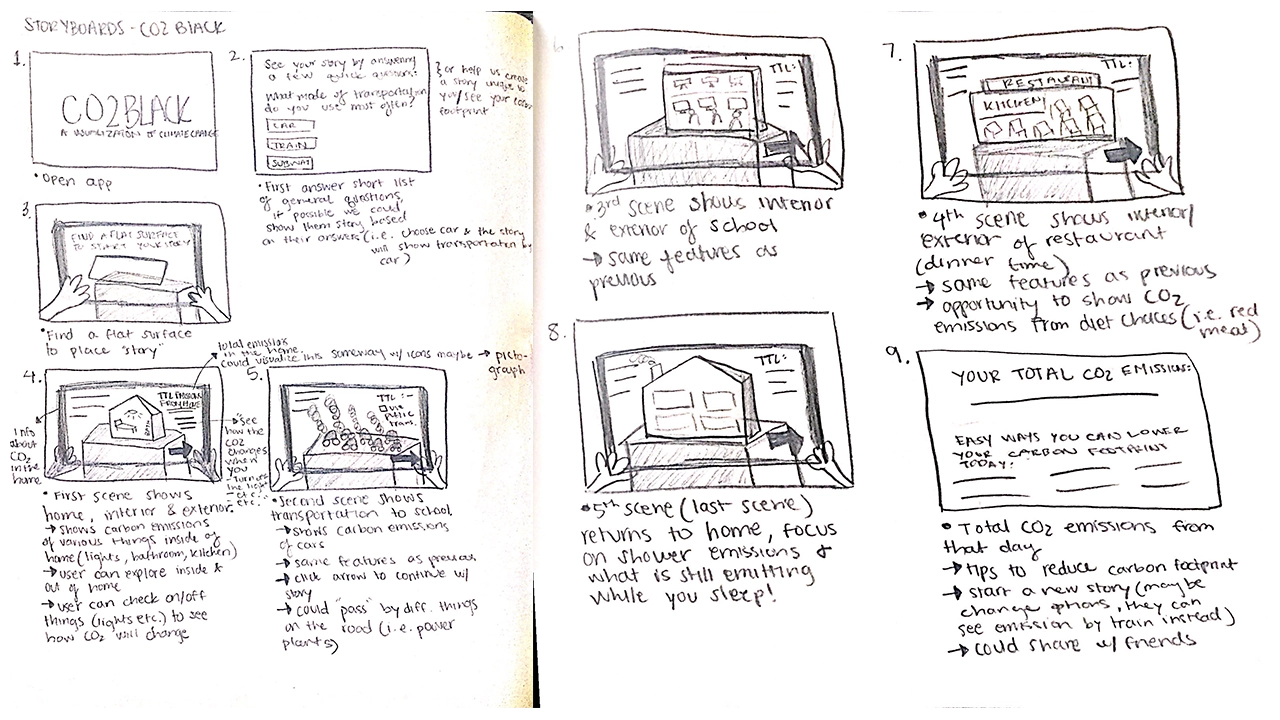 STORYBOARDS - CO2 BLACK
1.
CO2BLACK
A VISUALIZATION OF CLIMATE CHANGE
• Open app
2.
See your story by answering
a few quick questions:
What mode of transportation
do you use most often?
CAR
TRAIN
SUBWAY
} or help us create
a story unique to
you/see your carbon
footprint
• First answer short list
of general questions,
if possible we could
show them story based
on their answers (i.e. choose car & the story
will show transportation by
car)
3.
FIND A FLAT SURFACE
TO START YOUR STORY
• Find a flat surface
to place "story"
4.
total emissions
in the home.
could visualize this someway w/ icons maybe → picto-
graph
TTL EMISSION
FROM HOME
Info
about
CO2
in the
home
→ "see
how the
CO2
changes
when
you
- turn off
the light
- etc.
- etc."
• First scene shows
home, interior & exterior.
→ shows carbon emissions
of various things inside of
home (lights, bathroom, kitchen)
→ user can explore inside &
out of home
→ user can check on/off
things (lights etc.) to see
how CO2 will change
5.
TTL: -
use
public
trans.
• Second scene shows
transportation to school.
→ shows carbon emissions
of cars
→ same features as previous
→ click arrow to continue w/
story
→ could "pass" by diff. things
on the road (i.e. power
plants)
6.
TTL:
• 3rd scene shows interior
& exterior of school
→ same features as
previous
7.
TTL:
RESTAURANT
KITCHEN
• 4th scene shows interior/
exterior of restaurant
(dinner time)
→ same features as previous
→ opportunity to show CO2
emissions from diet choices (i.e. red
meat)
8.
TTL:
• 5th scene (last scene)
returns to home, focus
on shower emissions &
what is still emitting
while you sleep!
9.
YOUR TOTAL CO2 EMISSIONS:
EASY WAYS YOU CAN LOWER
YOUR CARBON FOOTPRINT
TODAY:
• Total CO2 emissions from
that day
→ tips to reduce carbon footprint
→ start a new story (maybe
change options, they can
see emission by train instead)
→ could share w/ friends